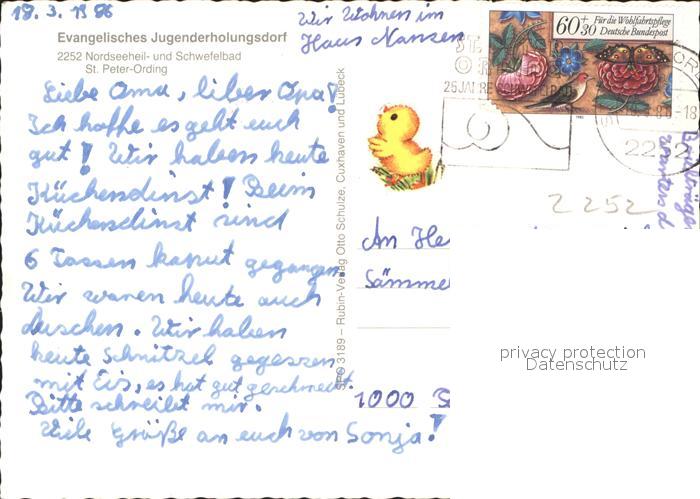 18. 3. 1986
Wir Wohnen im
Haus Nansen
Evangelisches Jugenderholungsdorf
2252 Nordseeheil- und Schwefelbad
St. Peter-Ording
60+30 Für die Wohlfahrtspflege
Deutsche Bundespost
Liebe Oma, liber Opa!
Ich hoffe es geht euch
gut! Wir haben heute
Küchendinst! Beim
Küchendinst sind
6 Tassen kaput gegangen.
Wir waren heute auch
duschen. Wir haben
heute Schnitzel gegessen
mit Eis, es hat gut geschmeckt.
Bitte schreibt mir.
Viele Grüße an euch von Sonja!
SPO 3189 – Rubin-Verlag Otto Schulze, Cuxhaven und Lübeck
2252
2252
An He
Sämme
1000
privacy protection
Datenschutz